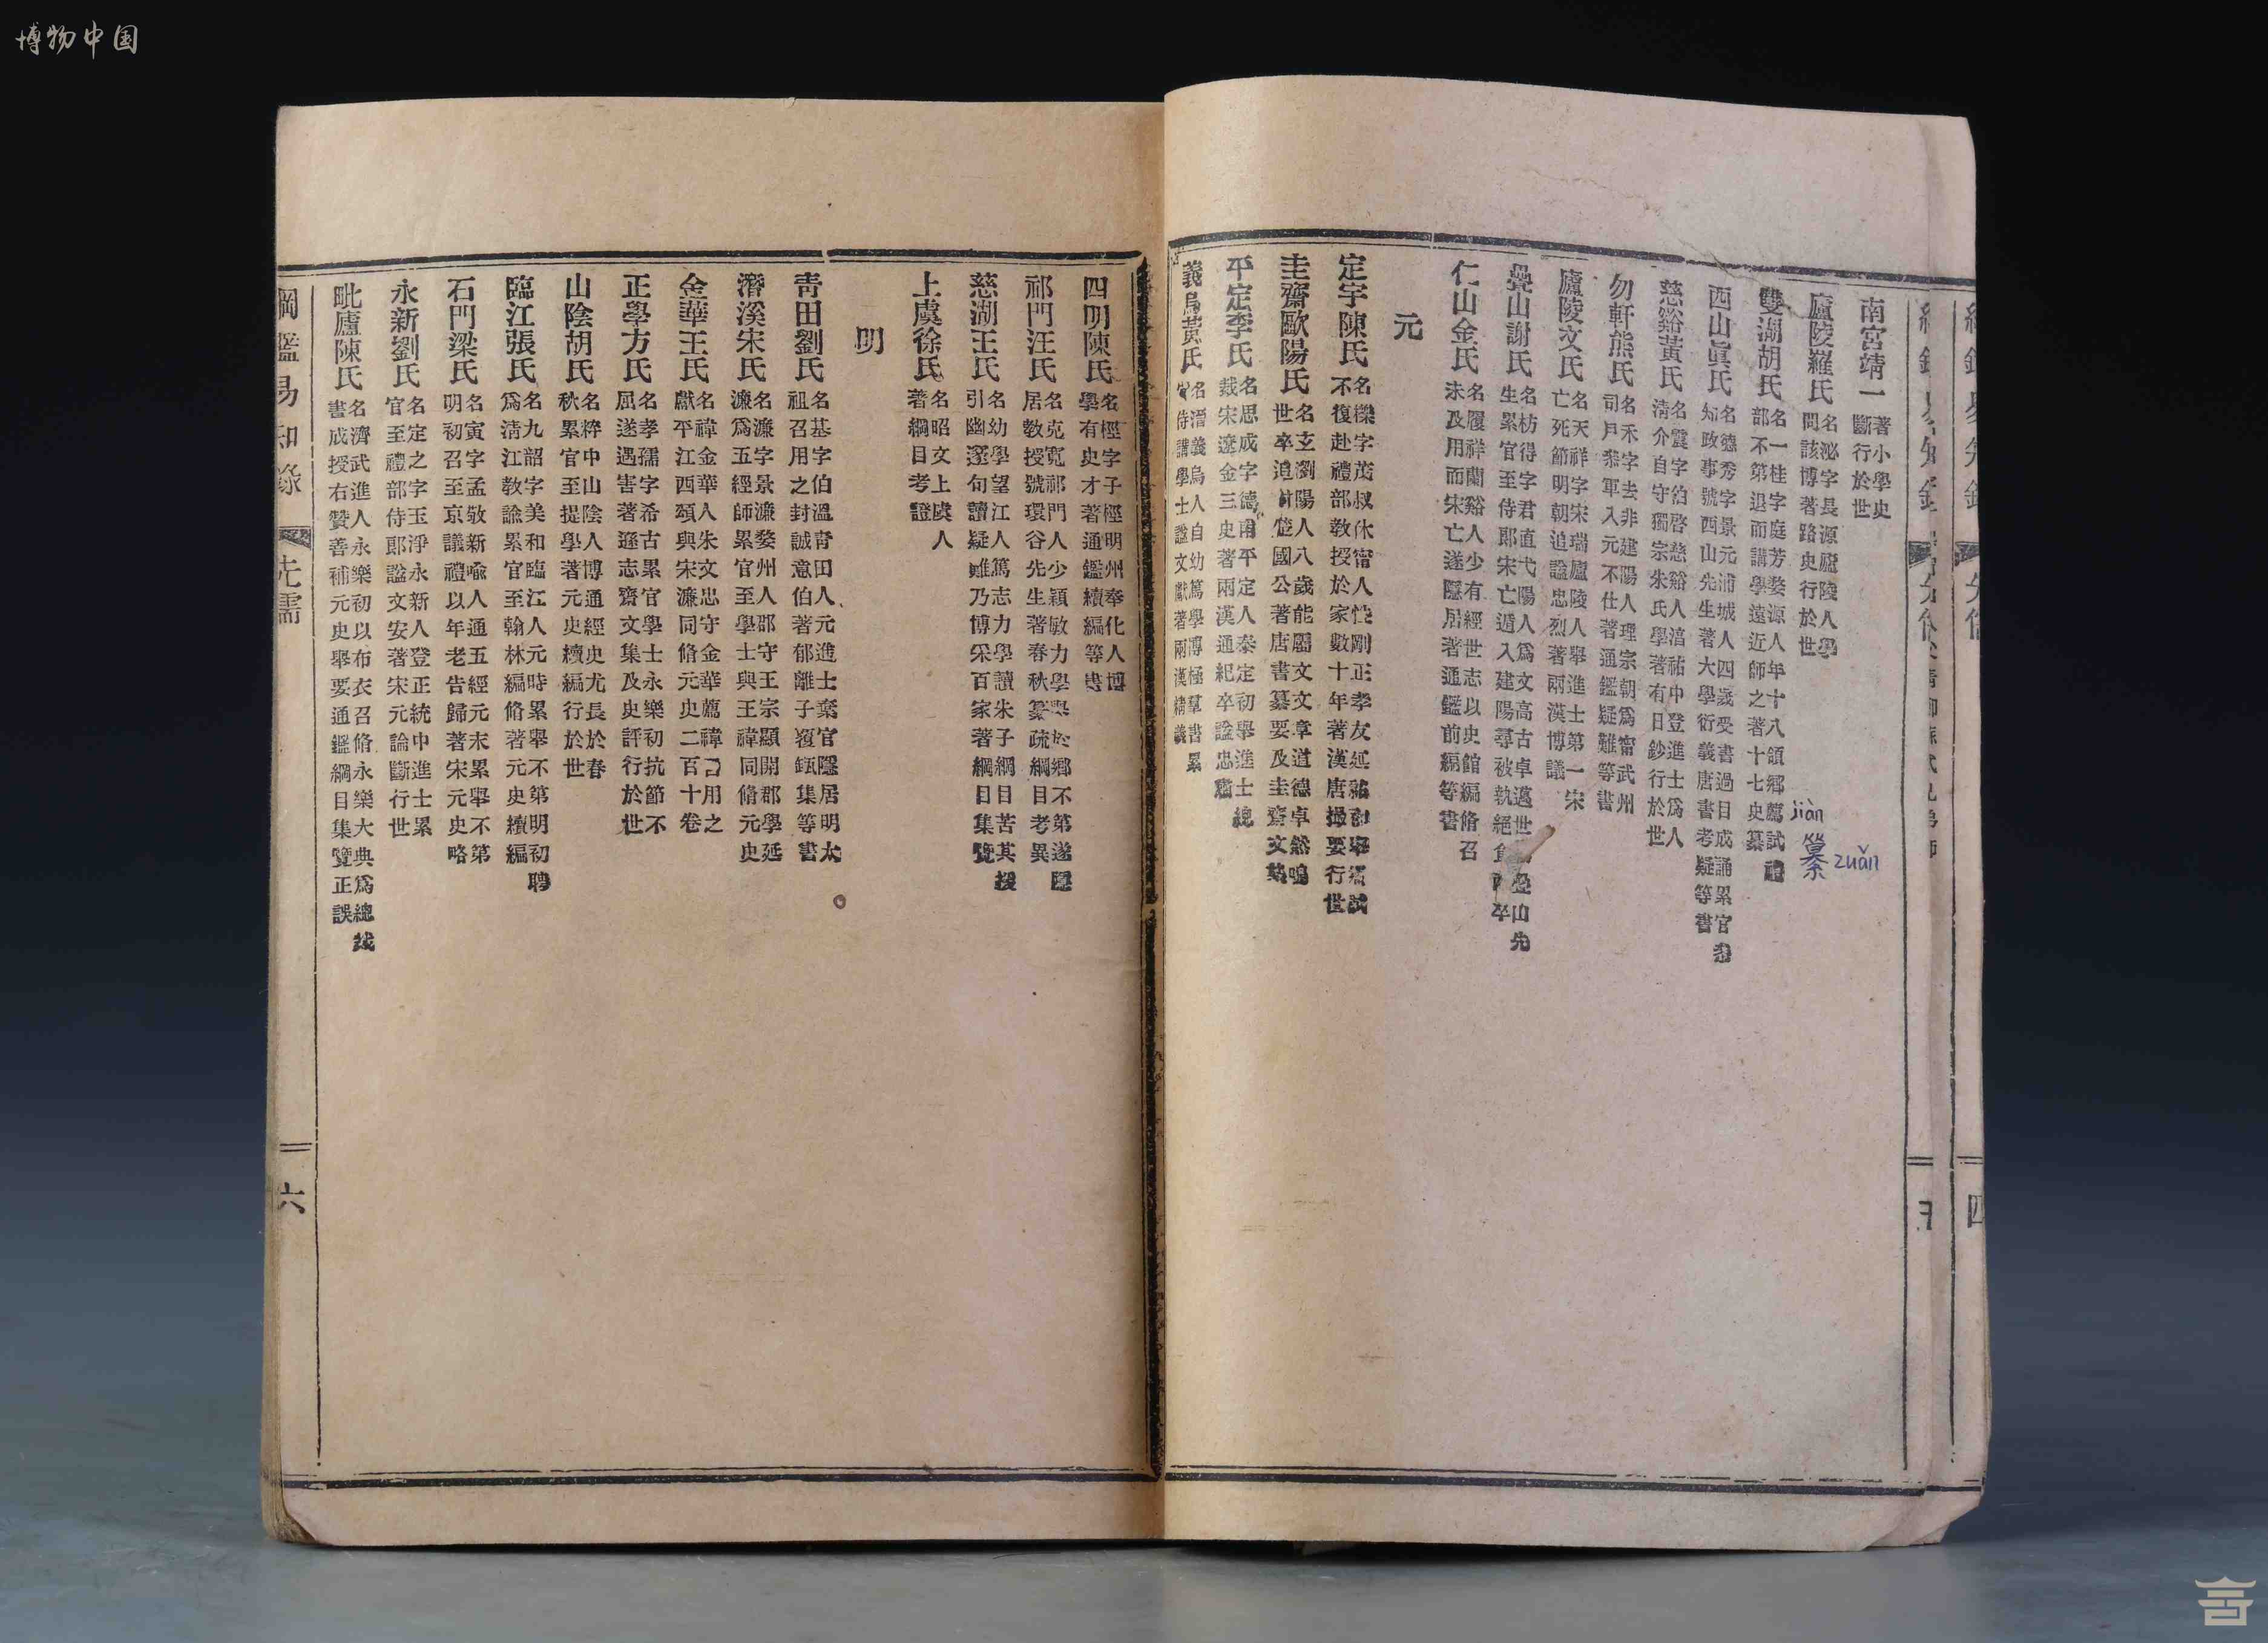 博物中国
南宮靖一 著小學史
斷行於世
廬陵羅氏 名泌字長源廬陵人學
問該博著路史行於世
雙湖胡氏 名一桂字庭芳婺源人年十八領鄉薦試禮
部不第退而講學遠近師之著十七史纂
jiàn
纂 zuǎn
西山眞氏 名德秀字景元浦城人四歲受書過目成誦累官參
知政事號西山先生著大學衍義唐書考疑等書
慈谿黃氏 名震字伯啓慈谿人湻祐中登進士爲人
清介自守獨宗朱氏學著有日鈔行於世
勿軒熊氏 名禾字去非建陽人理宗朝爲甯武州
司戶參軍入元不仕著通鑑疑難等書
廬陵文氏 名天祥字宋瑞廬陵人舉進士第一宋
亡死節明朝追諡忠烈著兩漢博議
疊山謝氏 名枋得字君直弋陽人爲文高古卓邁世疊山先
生累官至侍郎宋亡遁入建陽尋被執絕食卒
仁山金氏 名履祥蘭谿人少有經世志以史館編脩召
未及用而宋亡遂隱居著通鑑前編等書
元
定宇陳氏 名櫟字茂叔休甯人性剛正孝友延祐初舉鄉試
不復赴禮部敎授於家數十年著漢唐撮要行世
圭齋歐陽氏 名玄瀏陽人八歲能屬文文章道德卓然鳴
世卒追封楚國公著唐書纂要及圭齋文集
平定李氏 名思成字德甫平定人泰定初舉進士總
裁宋遼金三史著兩漢通紀卒諡忠肅
義烏黃氏 名溍義烏人自幼篤學博極羣書累
官侍講學士諡文獻著兩漢精義
四明陳氏 名桱字子桱明州奉化人博
學有史才著通鑑續編等書
祁門汪氏 名克寬祁門人少穎敏力學舉於鄉不第遂隱
居敎授號環谷先生著春秋纂疏綱目考異
慈湖王氏 名幼學望江人篤志力學讀朱子綱目苦其援
引幽邃句讀疑難乃博采百家著綱目集覽
上虞徐氏 名昭文上虞人
著綱目考證
明
靑田劉氏 名基字伯溫靑田人元進士棄官隱居明太
祖召用之封誠意伯著郁離子覆瓿集等書
潛溪宋氏 名濂字景濂婺州人郡守王宗顯開郡學延
濂爲五經師累官至學士與王禕同脩元史
金華王氏 名禕金華人朱文忠守金華薦禕召用之
獻平江西頌與宋濂同脩元史二百十卷
正學方氏 名孝孺字希古累官學士永樂初抗節不
屈遂遇害著遜志齋文集及史評行於世
山陰胡氏 名粹中山陰人博通經史尤長於春
秋累官至提學著元史續編行於世
臨江張氏 名九韶字美和臨江人元時累舉不第明初聘
爲淸江敎諭累官至翰林編脩著元史續編
石門梁氏 名寅字孟敬新喩人通五經元末累舉不第
明初召至京議禮以年老告歸著宋元史略
永新劉氏 名定之字玉淨永新人登正統中進士累
官至禮部侍郎諡文安著宋元論斷行世
毗廬陳氏 名濟武進人永樂初以布衣召脩永樂大典爲總裁
書成授右贊善補元史舉要通鑑綱目集覽正誤
綱鑑易知錄 先儒 六